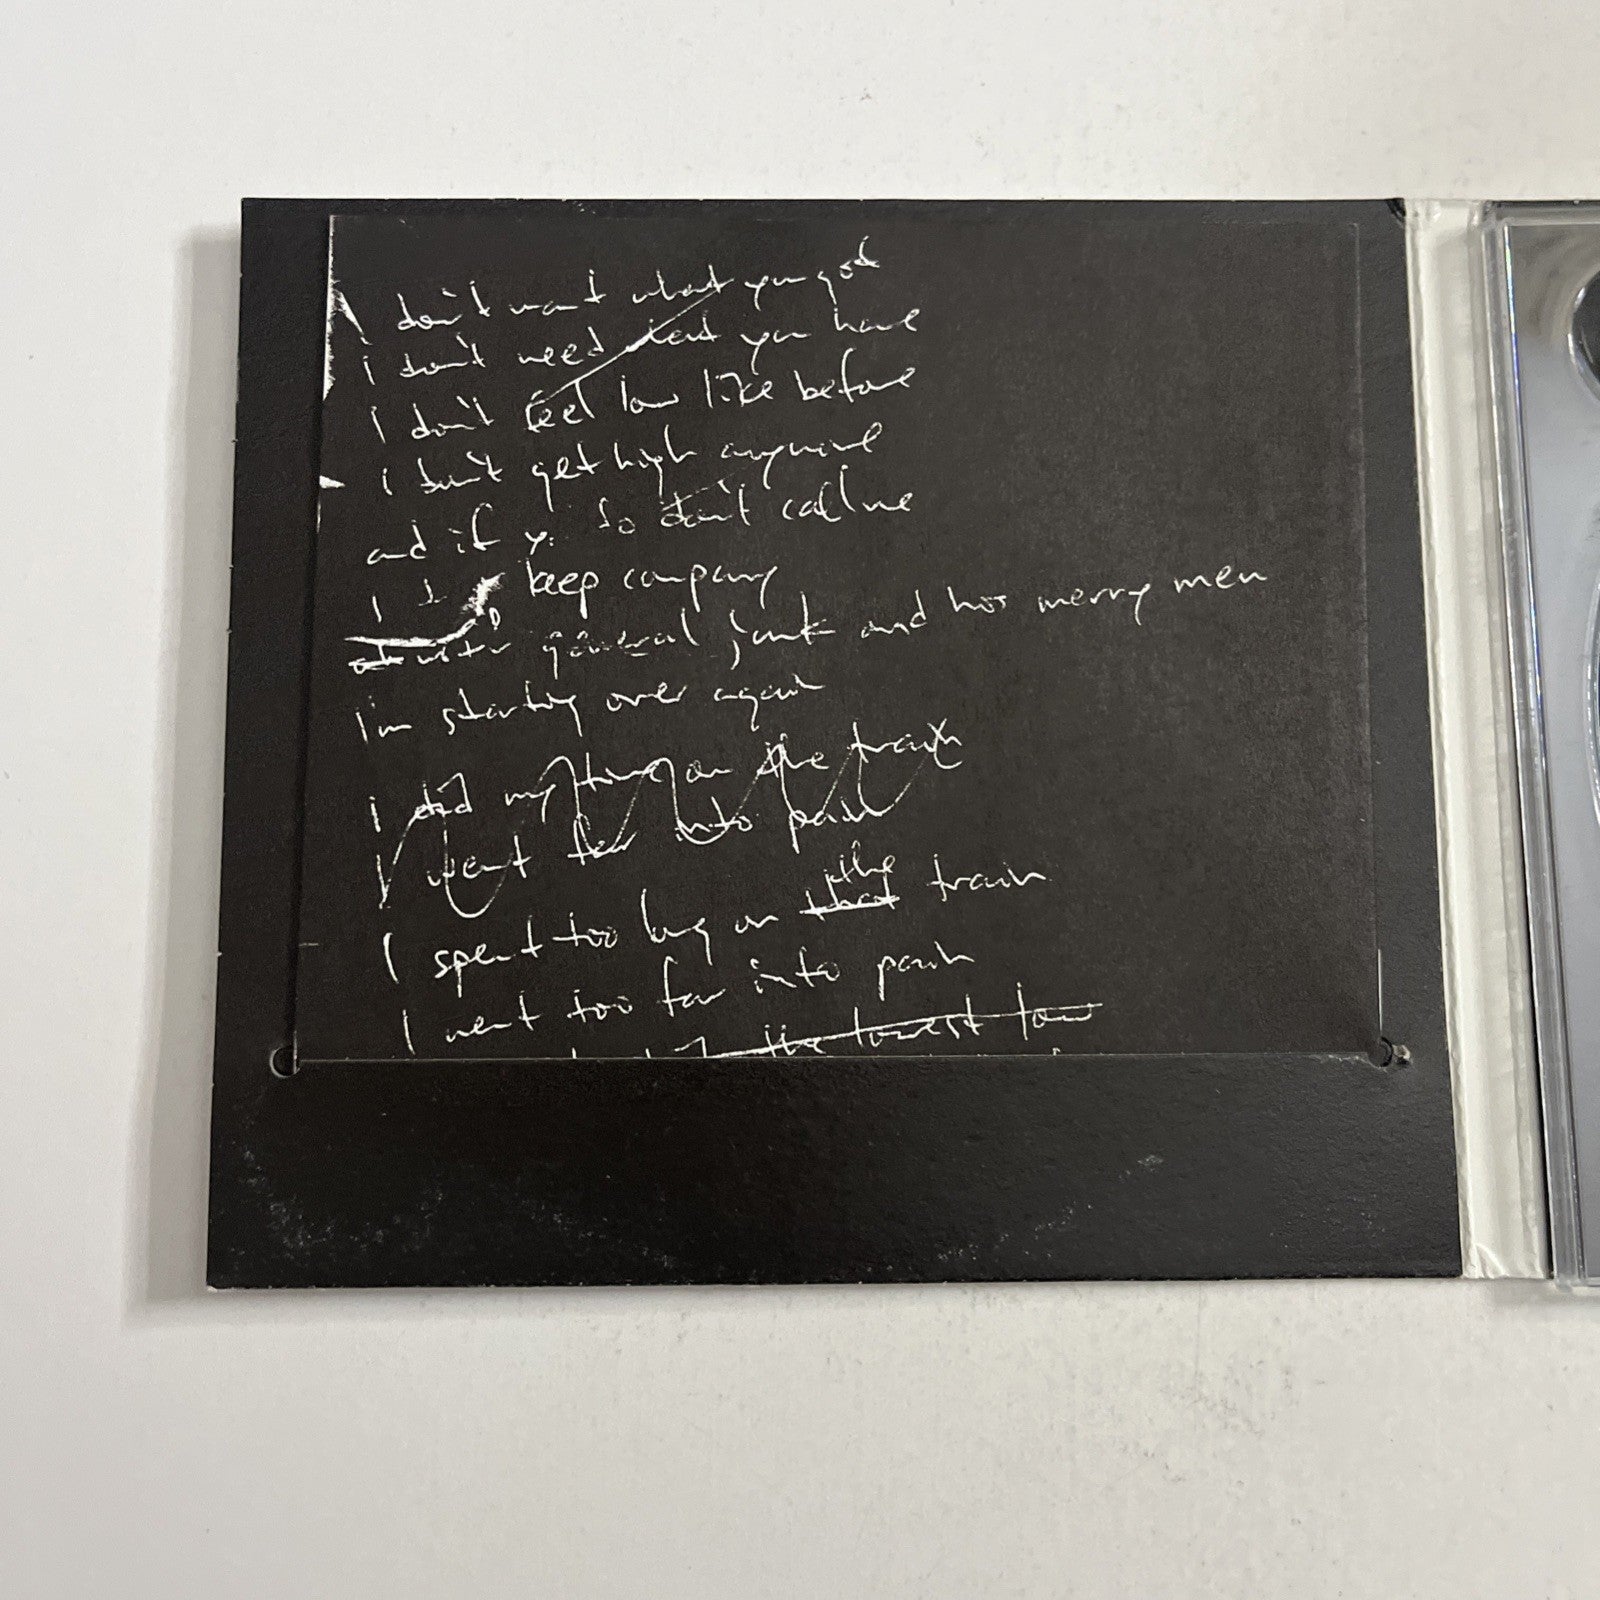 I don't want what you got
i don't need what you have
I don't feel low like before
i don't get high anymore
and if y. do don't call me
I keep company
with general junk and his merry men
I'm starting over again
i did my time on the train
I went far into pain
the
I spent too long on that train
I went too far into pain
the lowest low